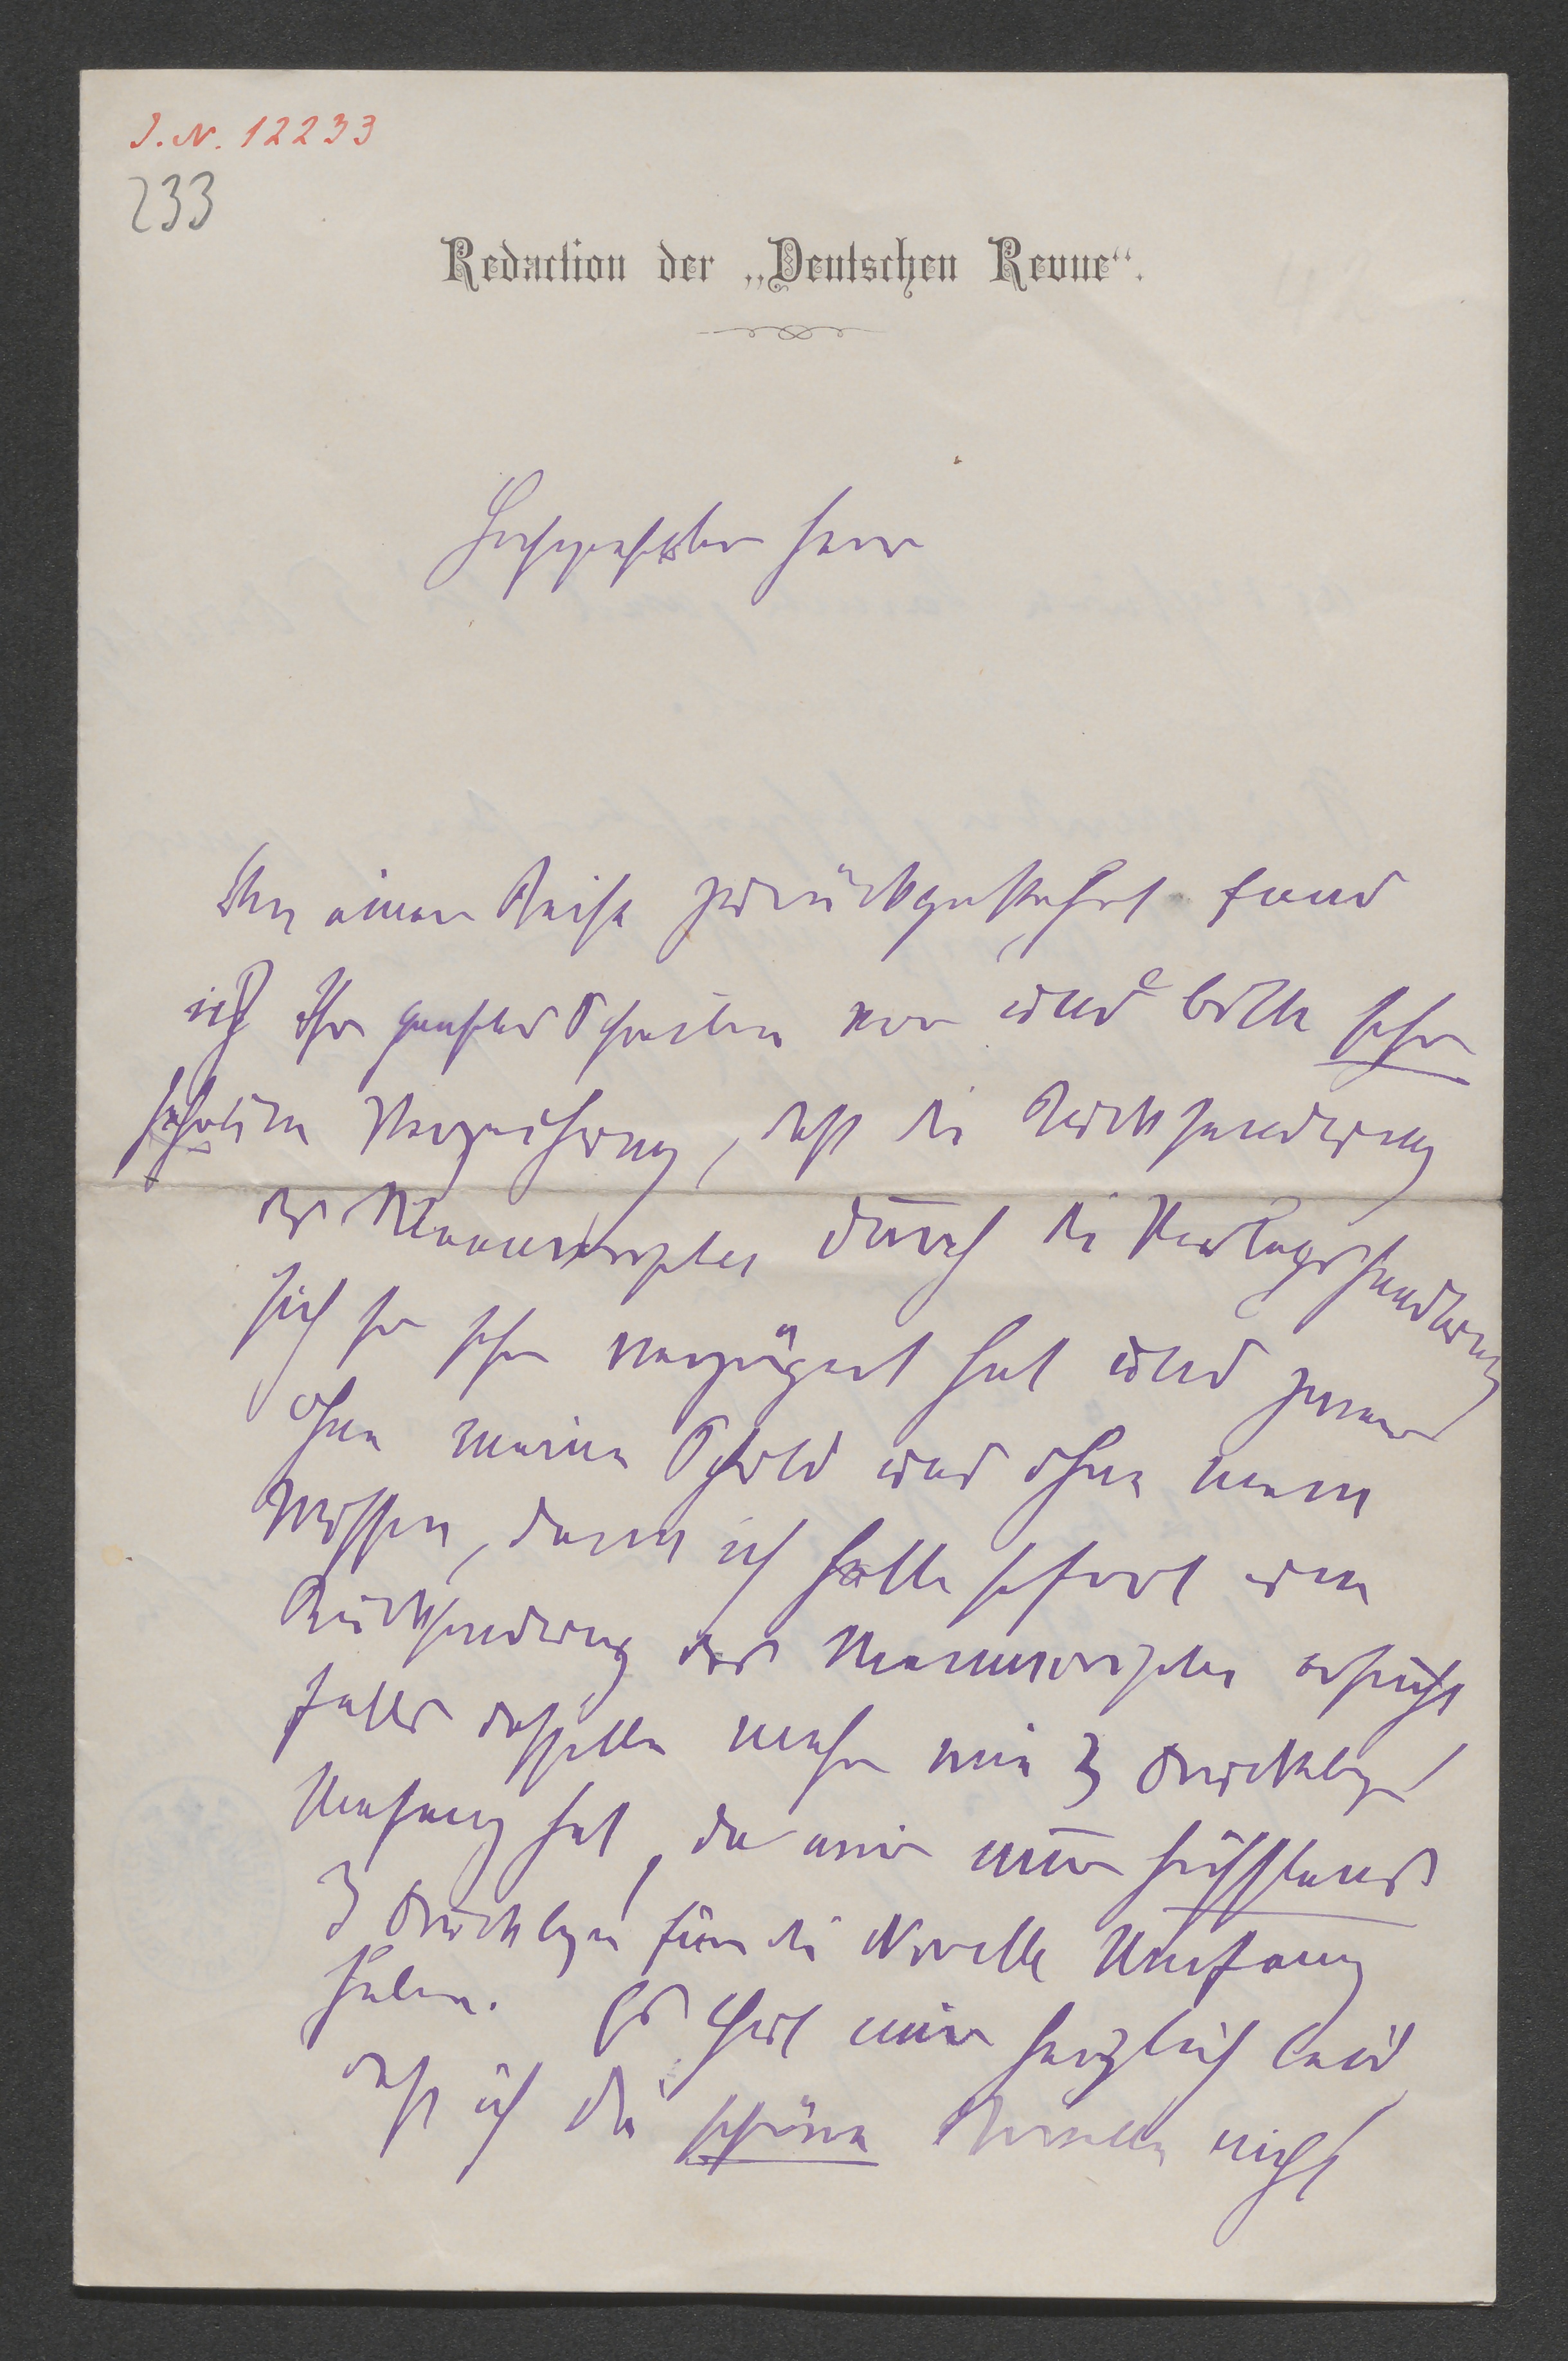 J. N. 12233
233
Redaction der „Deutschen Revue“.
Hochgeehrter Herr
Von einer Reise zurückgekehrt fand
ich Ihr geehrtes Schreiben vor und bitte sehr
um Verzeihung, daß die Rücksendung
des Manuscriptes durch die Verlagshandlung
sich so sehr verzögert hat und zwar
ohne meine Schuld und ohne mein
Wissen, denn ich hatte sofort um
Rücksendung des Manuscriptes ersucht
falls dasselbe mehr wie 3 Druckbogen
Umfang hat, da wir nur höchstens
3 Druckbogen für die Novelle Umfang
haben. Es thut mir herzlich leid
daß ich die schöne Novelle nicht